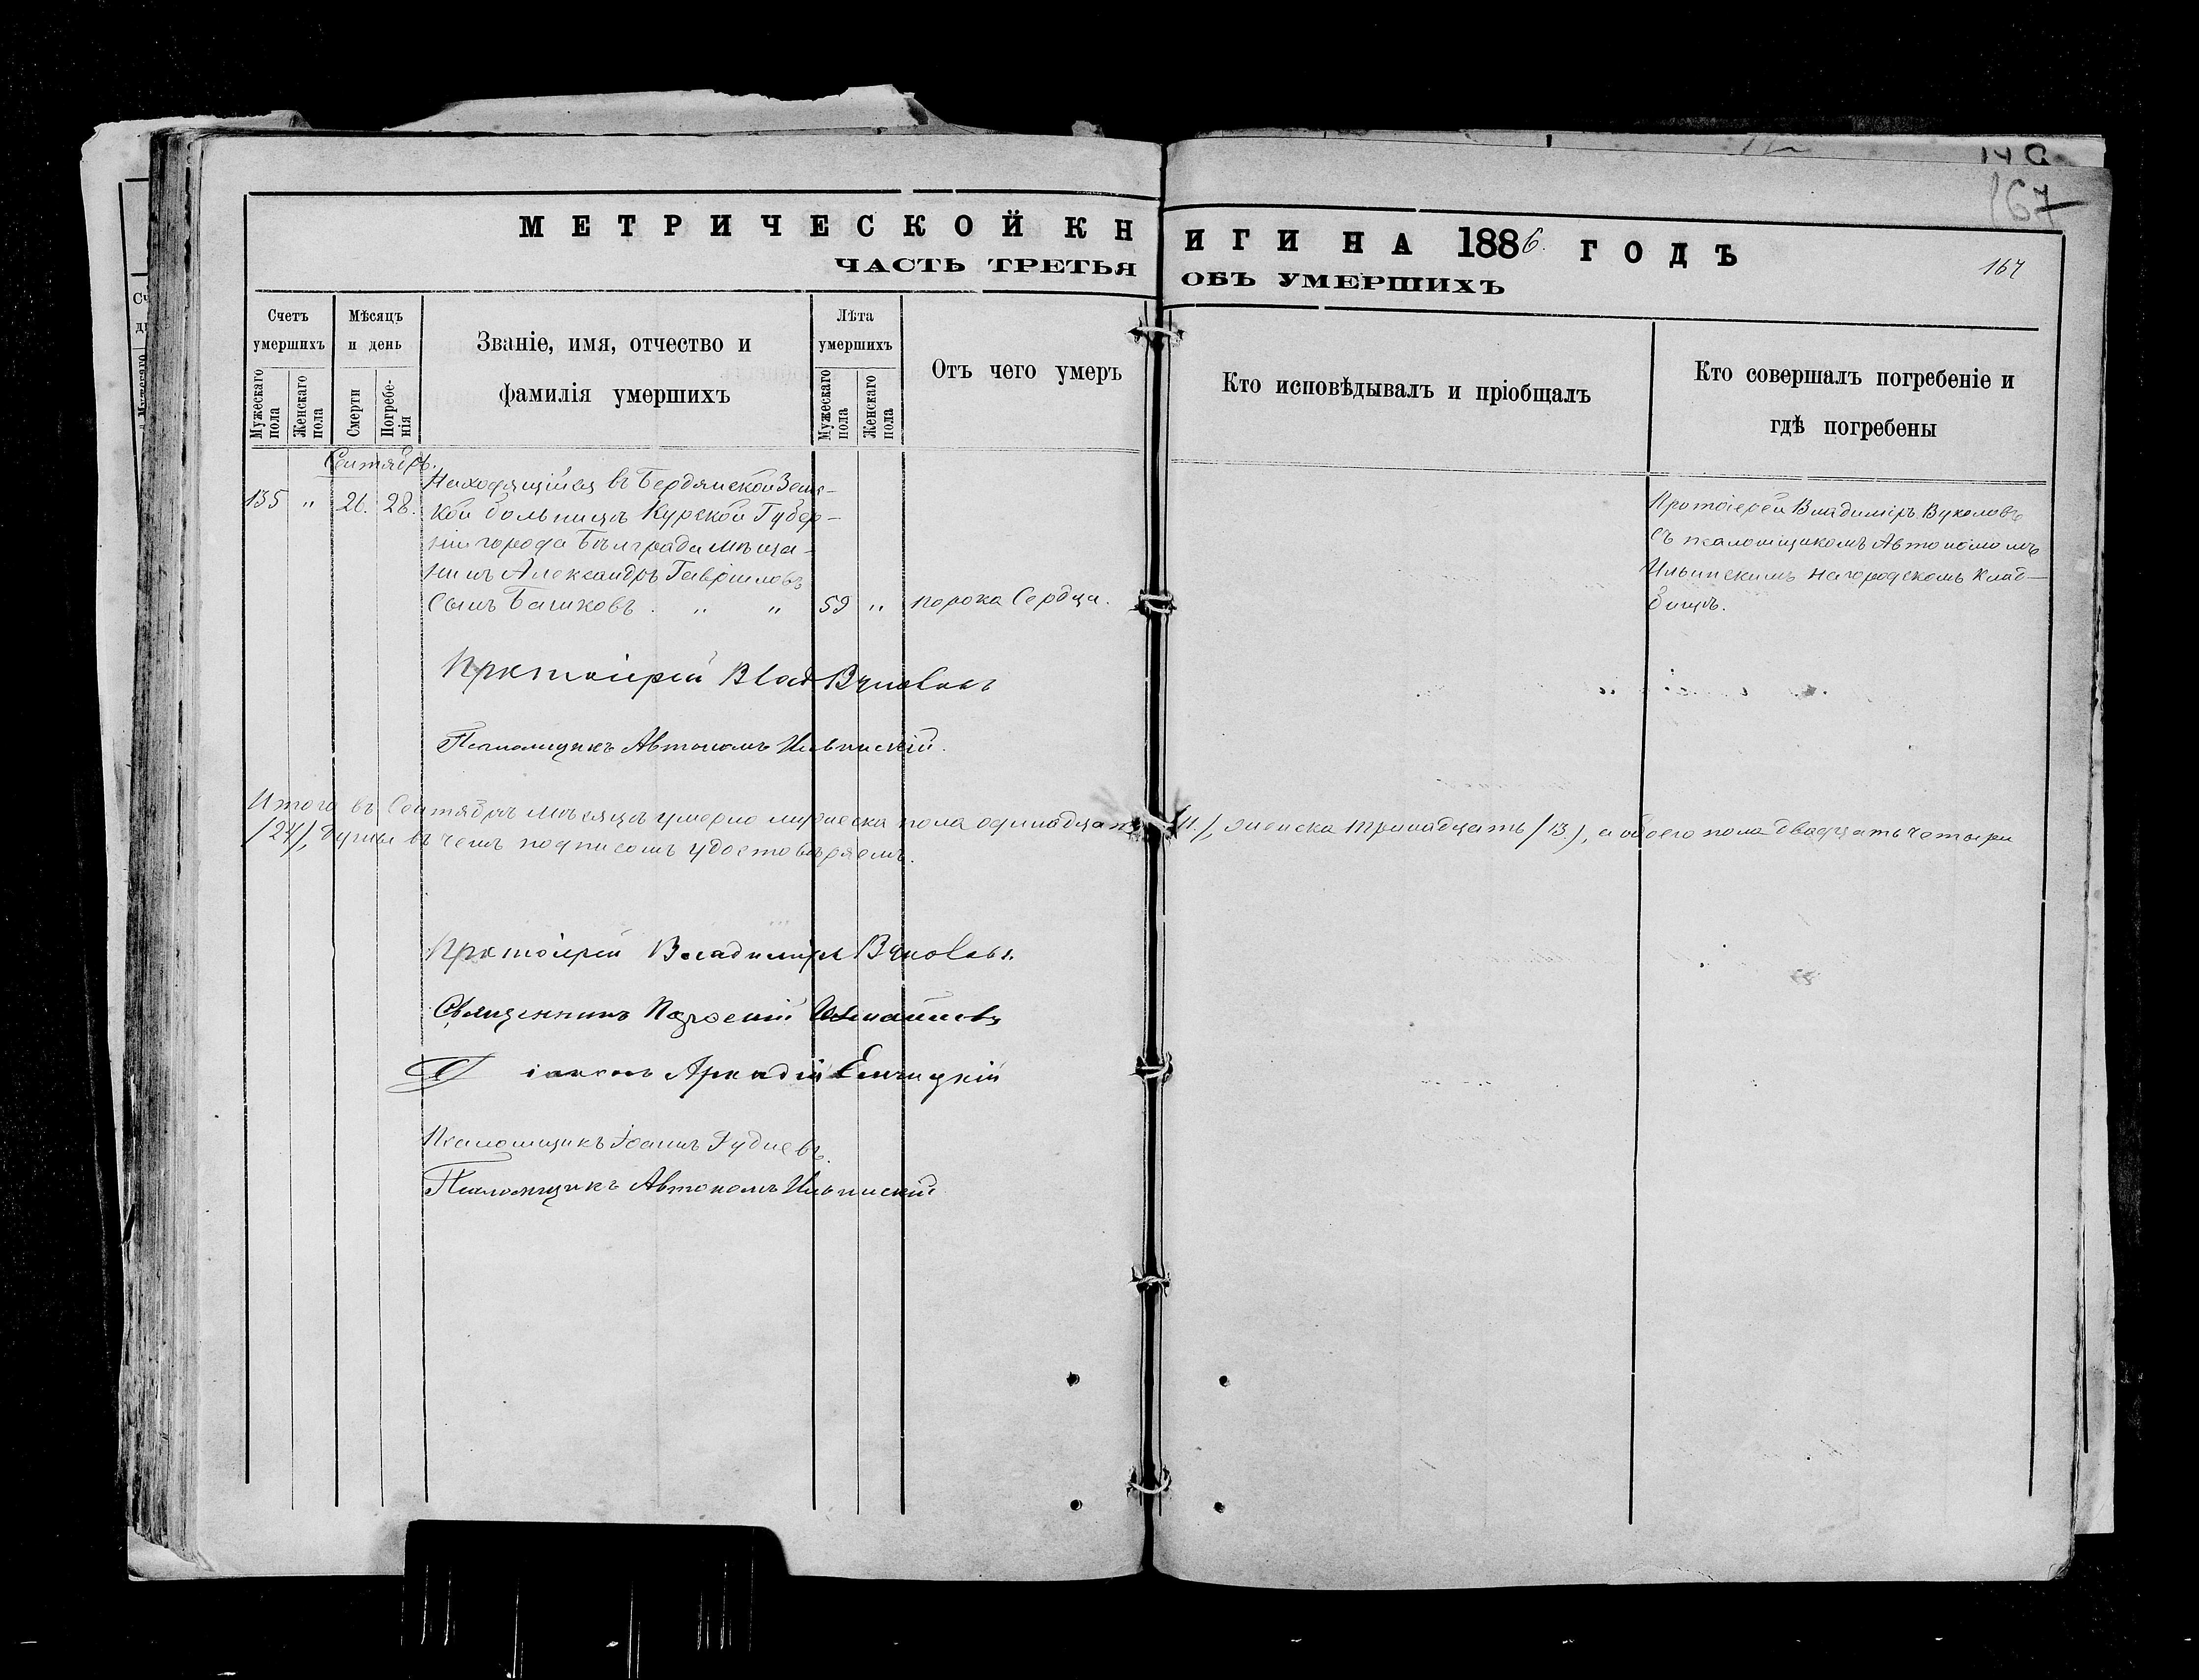 149
167
МЕТРИЧЕСКОЙ КНИГИ НА 1886. ГОДЪ
ЧАСТЬ ТРЕТЬЯ ОБЪ УМЕРШИХЪ
167
Счетъ умершихъ
Мужескаго пола
Женскаго пола
Мѣсяцъ и день
Смерти
Погребенія
Званіе, имя, отчество и
фамилія умершихъ
Лѣта умершихъ
Мужескаго пола
Женскаго пола
Отъ чего умеръ
Кто исповѣдывалъ и пріобщалъ
Кто совершалъ погребеніе и
гдѣ погребены
Сентябрь.
135 " 26. 28.
Находящійся въ Бердянской Земс-
кой больницѣ Курской Губер-
ніи города Бѣлграда мѣща-
нинъ Александръ Гавріиловъ
Сынъ Башковъ . " " 59 " порока Сердца.
Протоіерей Владиміръ Вуколовъ
съ псаломщикомъ Автономомъ
Ильинскимъ на городскомъ клад-
бищѣ.
Протоіерей Влад Вуколовъ
Псаломщикъ Автономъ Ильинскій.
Итого въ Сентябрѣ мѣсяцѣ умерло мужеска пола одинадцать /11/, женска тринадцать /13/, а обоего пола двадцать четыре
/24/, души въ чемъ подписомъ удостовѣряемъ.
Протоіерей Владиміръ Вуколовъ.
Священникъ
Діаконъ Аркадій
Псаломщикъ Іоаннъ Рудневъ.
Псаломщикъ Автономъ Ильинскій